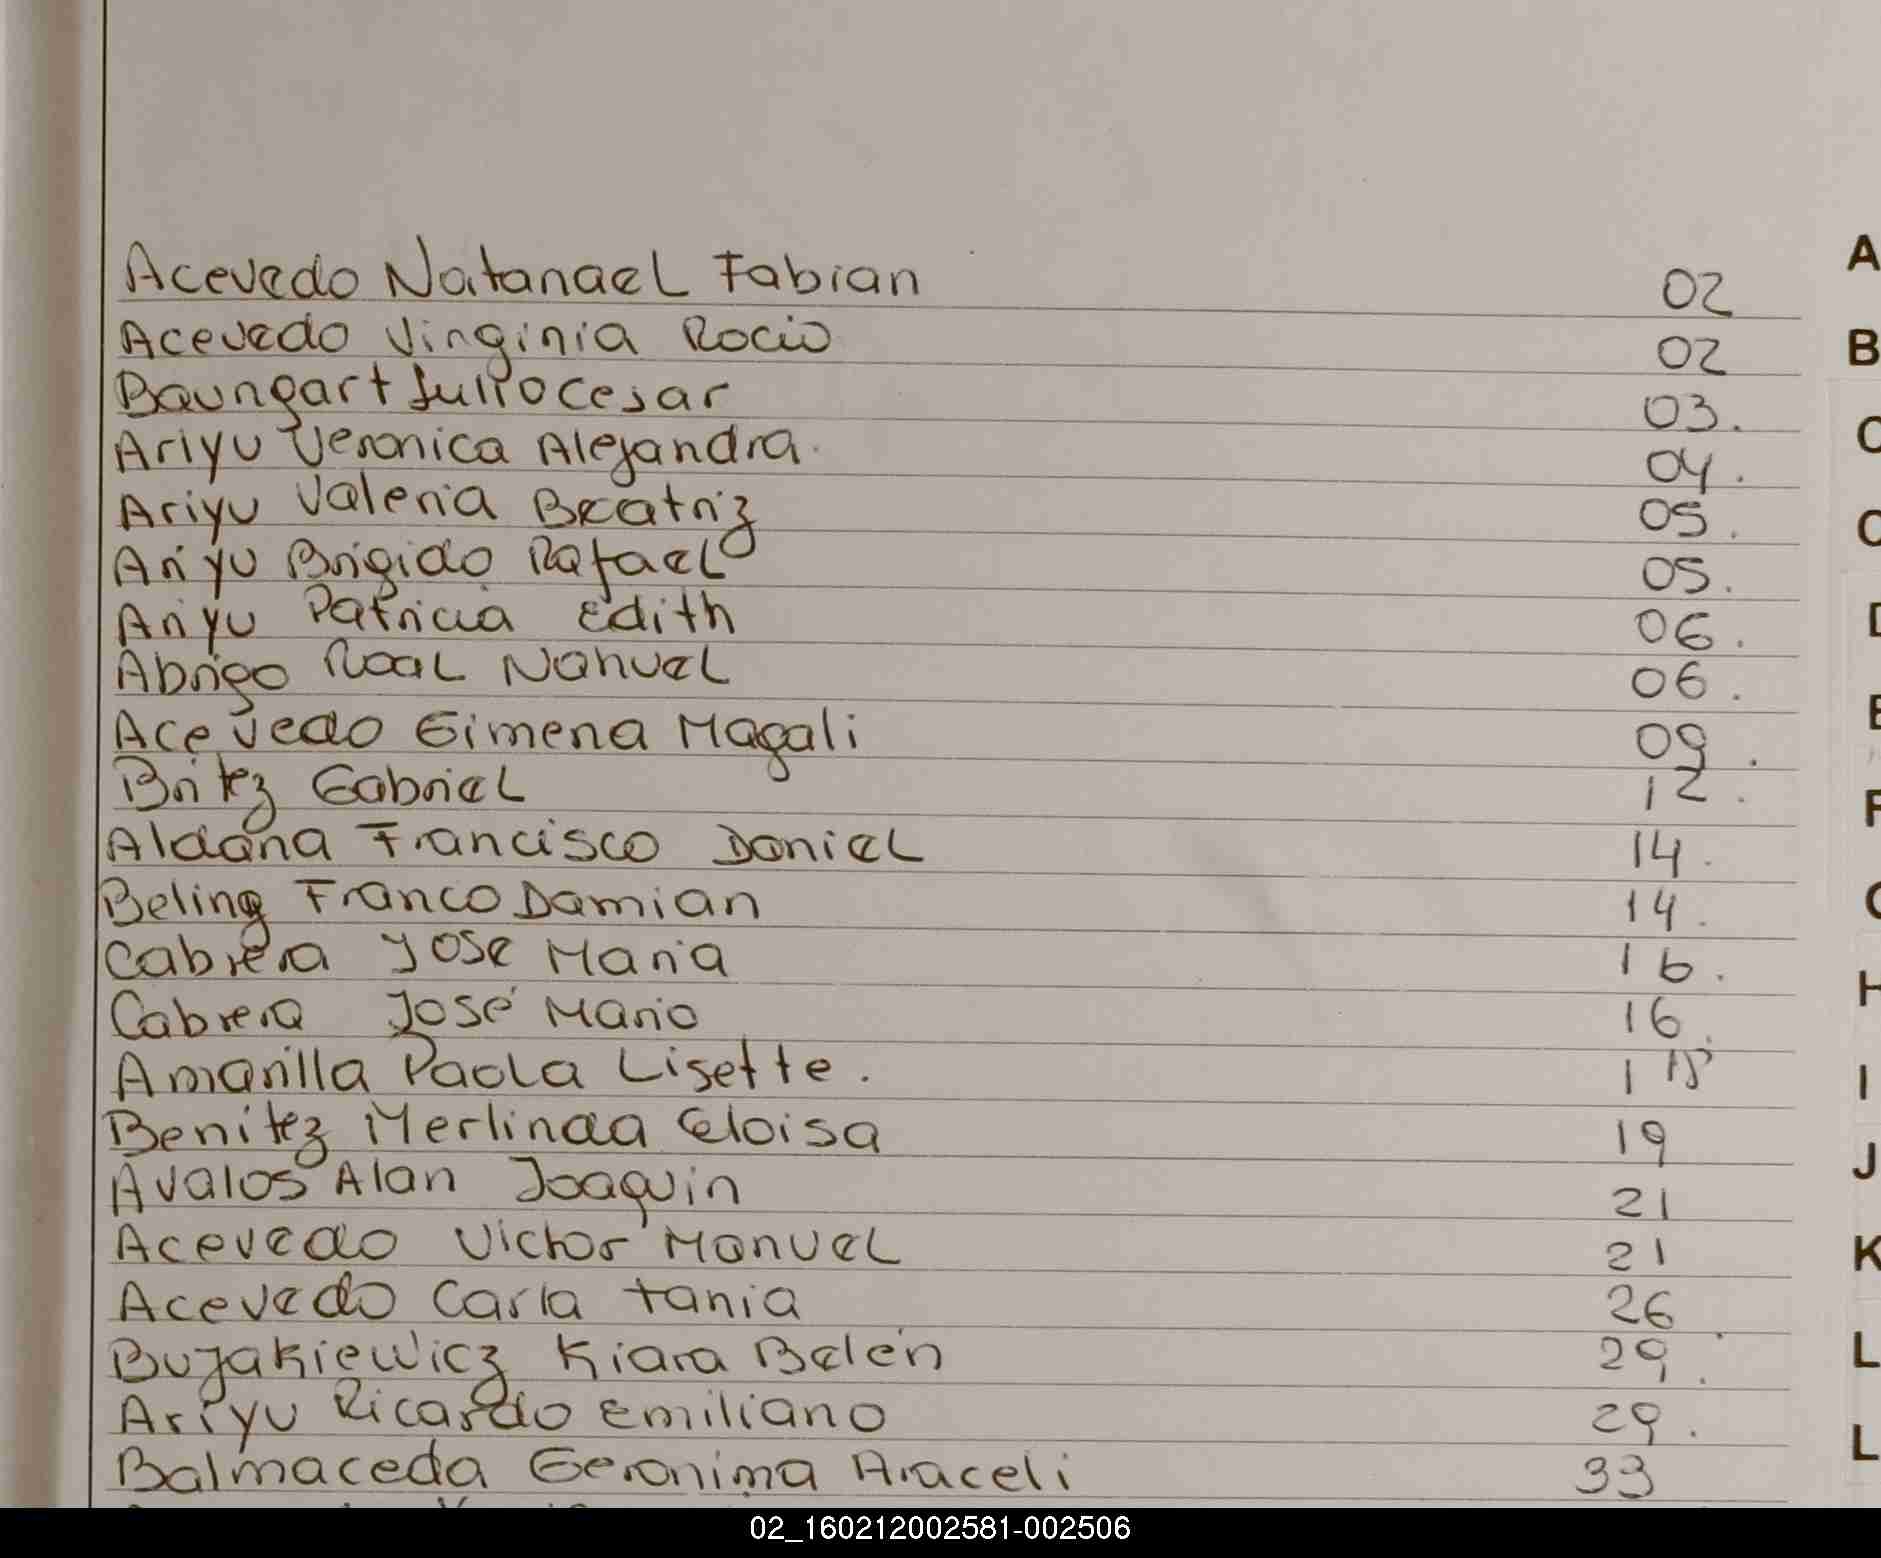 Acevedo Natanael Fabian 02
Acevedo Virginia Rocio 02
Baungart Julio Cesar 03.
Ariyu Veronica Alejandra. 04.
Ariyu Valeria Beatriz 05.
Ariyu Brigido Rafael 05.
Ariyu Patricia Edith 06.
Abrigo Roal Nahuel 06.
Acevedo Gimena Magali 09.
Britez Gabriel 12.
Aldana Francisco Daniel 14.
Beling Franco Damian 14.
Cabrera Jose Maria 16.
Cabrera José Mario 16.
Amarilla Paola Lisette.
Benitez Merlinda Eloisa 19
Avalos Alan Joaquin 21
Acevedo Victor Manuel 21
Acevedo Carla Tania 26
Bujakiewicz Kiara Belén 29.
Ariyu Ricardo Emiliano 29.
Balmaceda Geronima Araceli 33
A
B
C
C
D
E
F
G
H
I
J
K
L
L
02_160212002581-002506